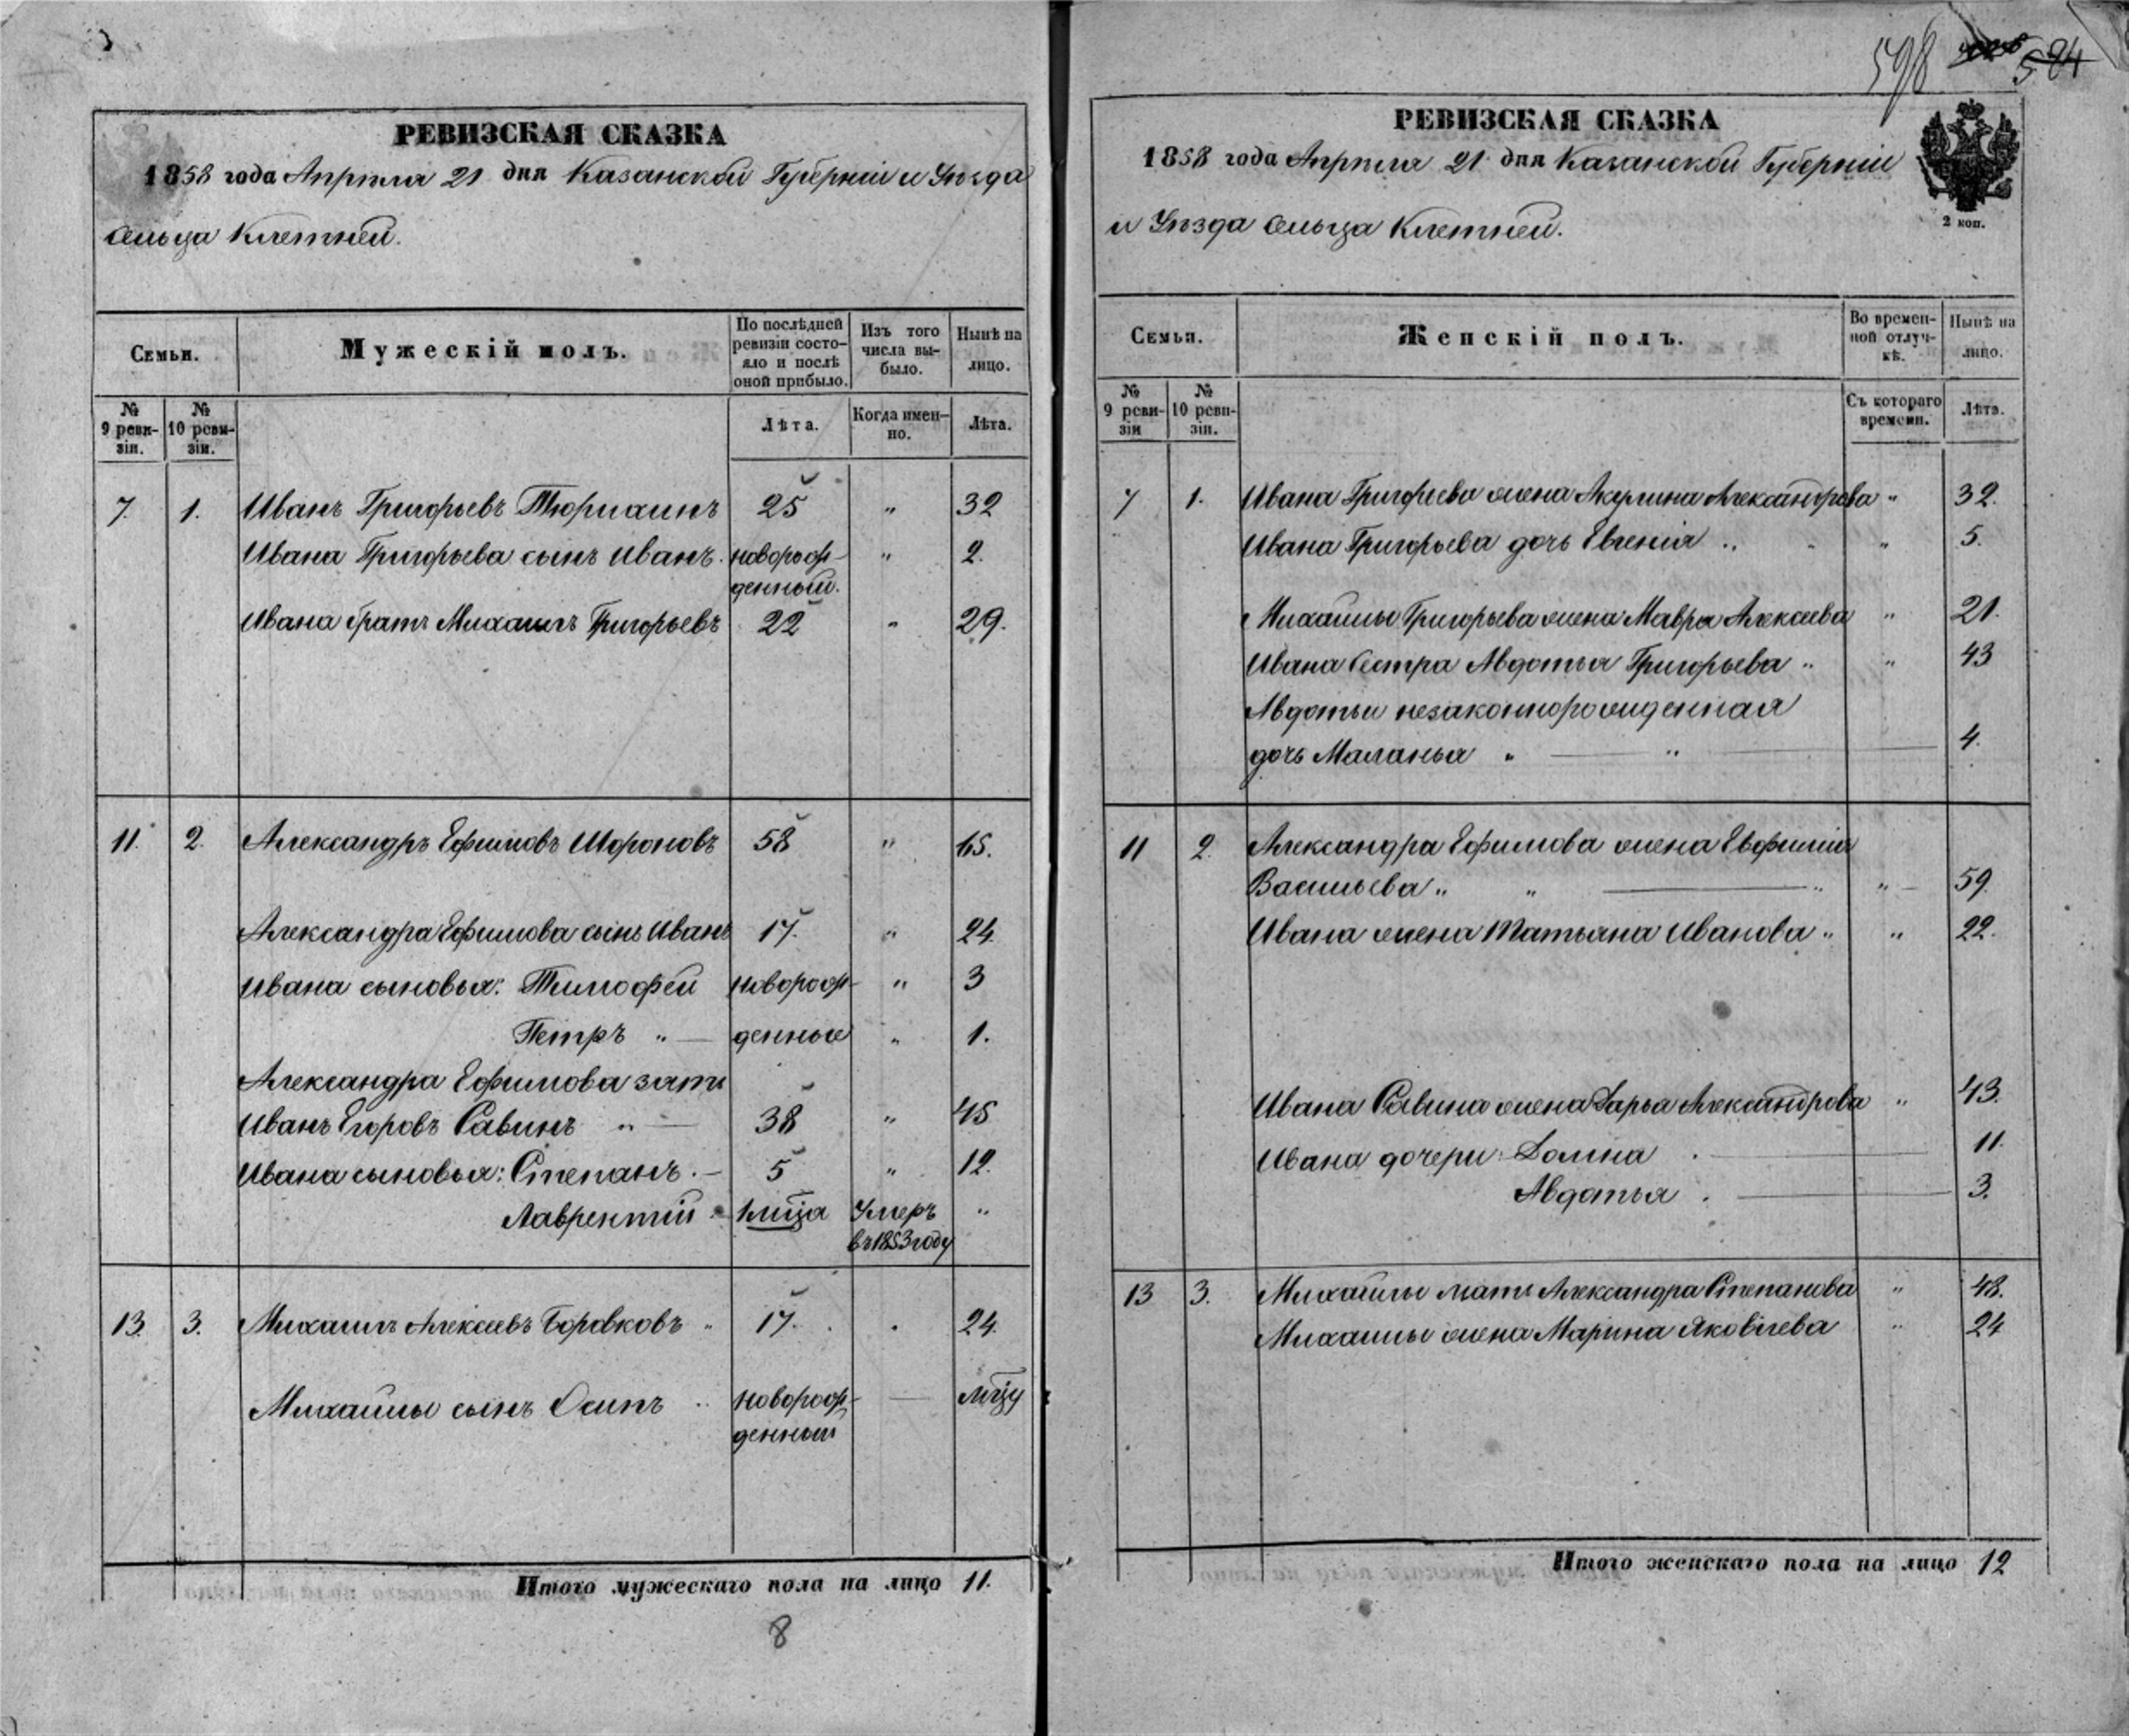 РЕВИЗСКАЯ СКАЗКА
1858 года Апрѣля 21 дня Казанской Губерніи и Уѣзда
сельца Клетней.
Семьи.
Мужескій полъ.
По послѣдней ревизіи состо-
яло и послѣ
оной прибыло.
Изъ того
числа вы-
было.
Нынѣ на
лицо.
№
9 реви-
зіи.
№
10 реви-
зіи.
Лѣта.
Когда имен-
но.
Лѣта.
7. 1. Иванъ Григорьевъ 25 " 32
Ивана Григорьева сынъ Иванъ. новорож- " 2.
денный.
Ивана братъ Михаилъ Григорьевъ 22 " 29.
11. 2. Александръ Ефимовъ Шороновъ 58 " 65.
Александра Ефимова сынъ Иванъ 17. " 24.
Ивана сыновья: Тимофей новорож- " 3
Петръ " — денные " 1.
Александра Ефимова зять
Иванъ Егоровъ Савинъ " — 38 " 45
Ивана сыновья: Степанъ. — 5 " 12.
Лаврентій 1 мца Умеръ "
въ 1853 году
13. 3. Михаилъ Алексѣевъ Боровковъ " 17. 24.
Михайлы сынъ Осипъ " новорож- — мцу
денный
Итого мужескаго пола на лицо 11.
8
598 584
РЕВИЗСКАЯ СКАЗКА
1858 года Апрѣля 21 дня Казанской Губерніи
и Уѣзда сельца Клетней.
2 коп.
Семьи.
Женскій полъ.
Во времен-
ной отлуч-
кѣ.
Нынѣ на
лицо.
№
9 реви-
зіи
№
10 реви-
зіи.
Съ котораго
времени.
Лѣта.
7 1. Ивана Григорьева жена Акулина Александрова " 32.
Ивана Григорьева дочь Евгенія " " 5.
Михайлы Григорьева жена Мавра Алексѣева " 21.
Ивана сестра Авдотья Григорьева " " 43
Авдотьи незаконнорожденная
дочь Маланья " — " — 4.
11 2. Александра Ефимова жена Евфимія
Васильева " " — " " — 59.
Ивана жена Татьяна Иванова " " 22.
Ивана Савина жена Дарья Александрова " 43.
Ивана дочери: Домна . — 11.
Авдотья . — 3.
13 3. Михайлы мать Александра Степанова " 48.
Михайлы жена Марина Яковлева " 24
Итого женскаго пола на лицо 12